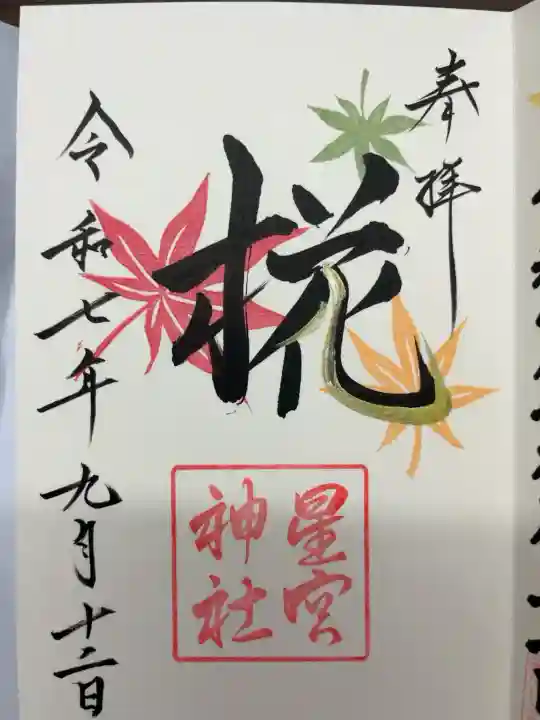 奉拝
椛
星宮
神社
令和七年九月十二日